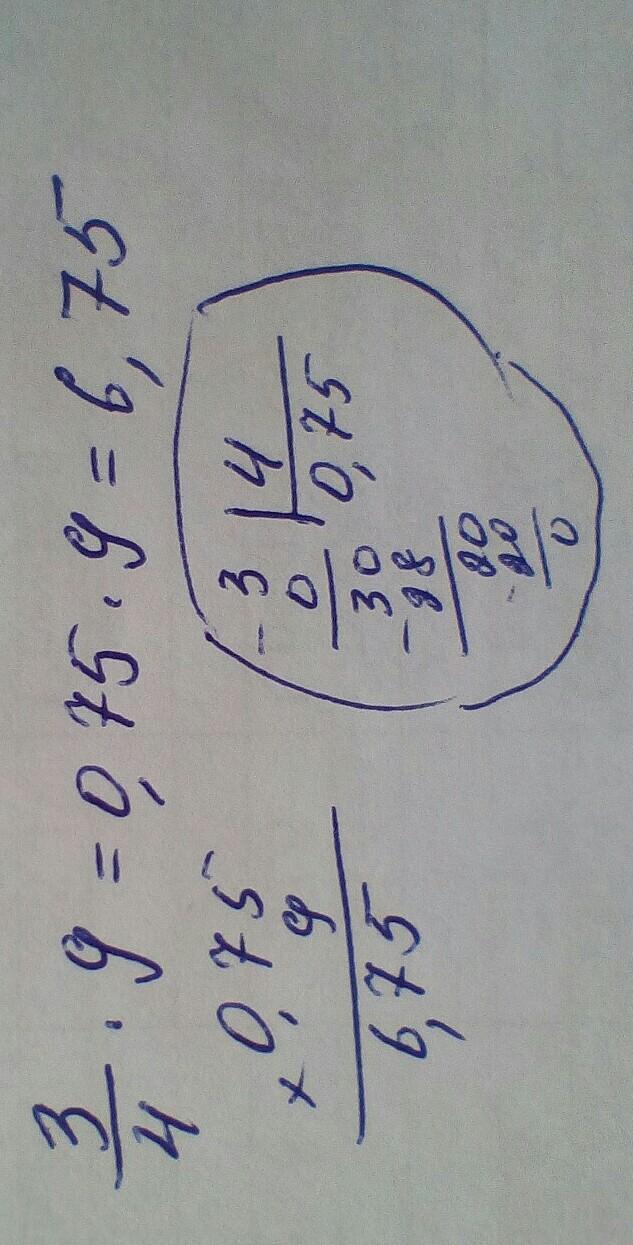 3/4 · 9 = 0,75 · 9 = 6,75
× 0,75
9
6,75
- 3 | 4
0 0,75
30
- 28
20
- 20
0